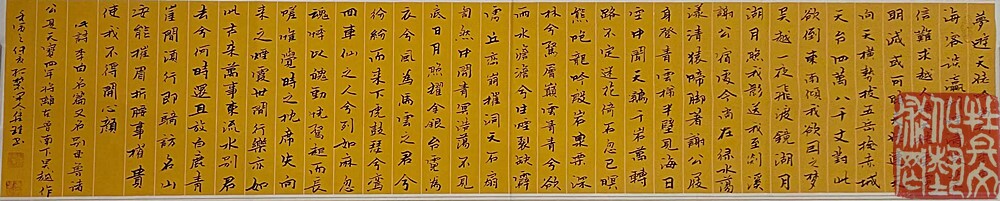 夢遊天姥
海客談瀛
信難求越人
明滅或可
向天橫勢拔五岳掩赤城
天台四萬八千丈對此
欲倒東南傾我欲因之夢
吳越一夜飛渡鏡湖月
湖月照我影送我至剡溪
謝公宿處今尚在綠水蕩
漾清猿啼脚著謝公屐
身登青雲梯半壁見海日
空中聞天鷄千岩萬轉
路不定迷花倚石忽已暝
熊咆龍吟殷岩泉慄深
林兮驚層巔雲青青兮欲
雨水澹澹兮生煙裂缺霹
靂丘巒崩摧洞天石扇
訇然中開青冥浩蕩不見
底日月照耀金銀台霓為
衣兮風為馬雲之君兮
紛紛而來下虎鼓瑟兮鸞
回車仙之人兮列如麻忽
魂悸以魄動怳驚起而長
嗟唯覺時之枕席失向
來之煙霞世間行樂亦如
此古來萬事東流水別君
去兮何時還且放白鹿青
崖間須行即騎訪名山
安能摧眉折腰事權貴
使我不得開心顏
此詩李白名篇又名别東魯諸
公是天寶四年將離東魯南下吳越作